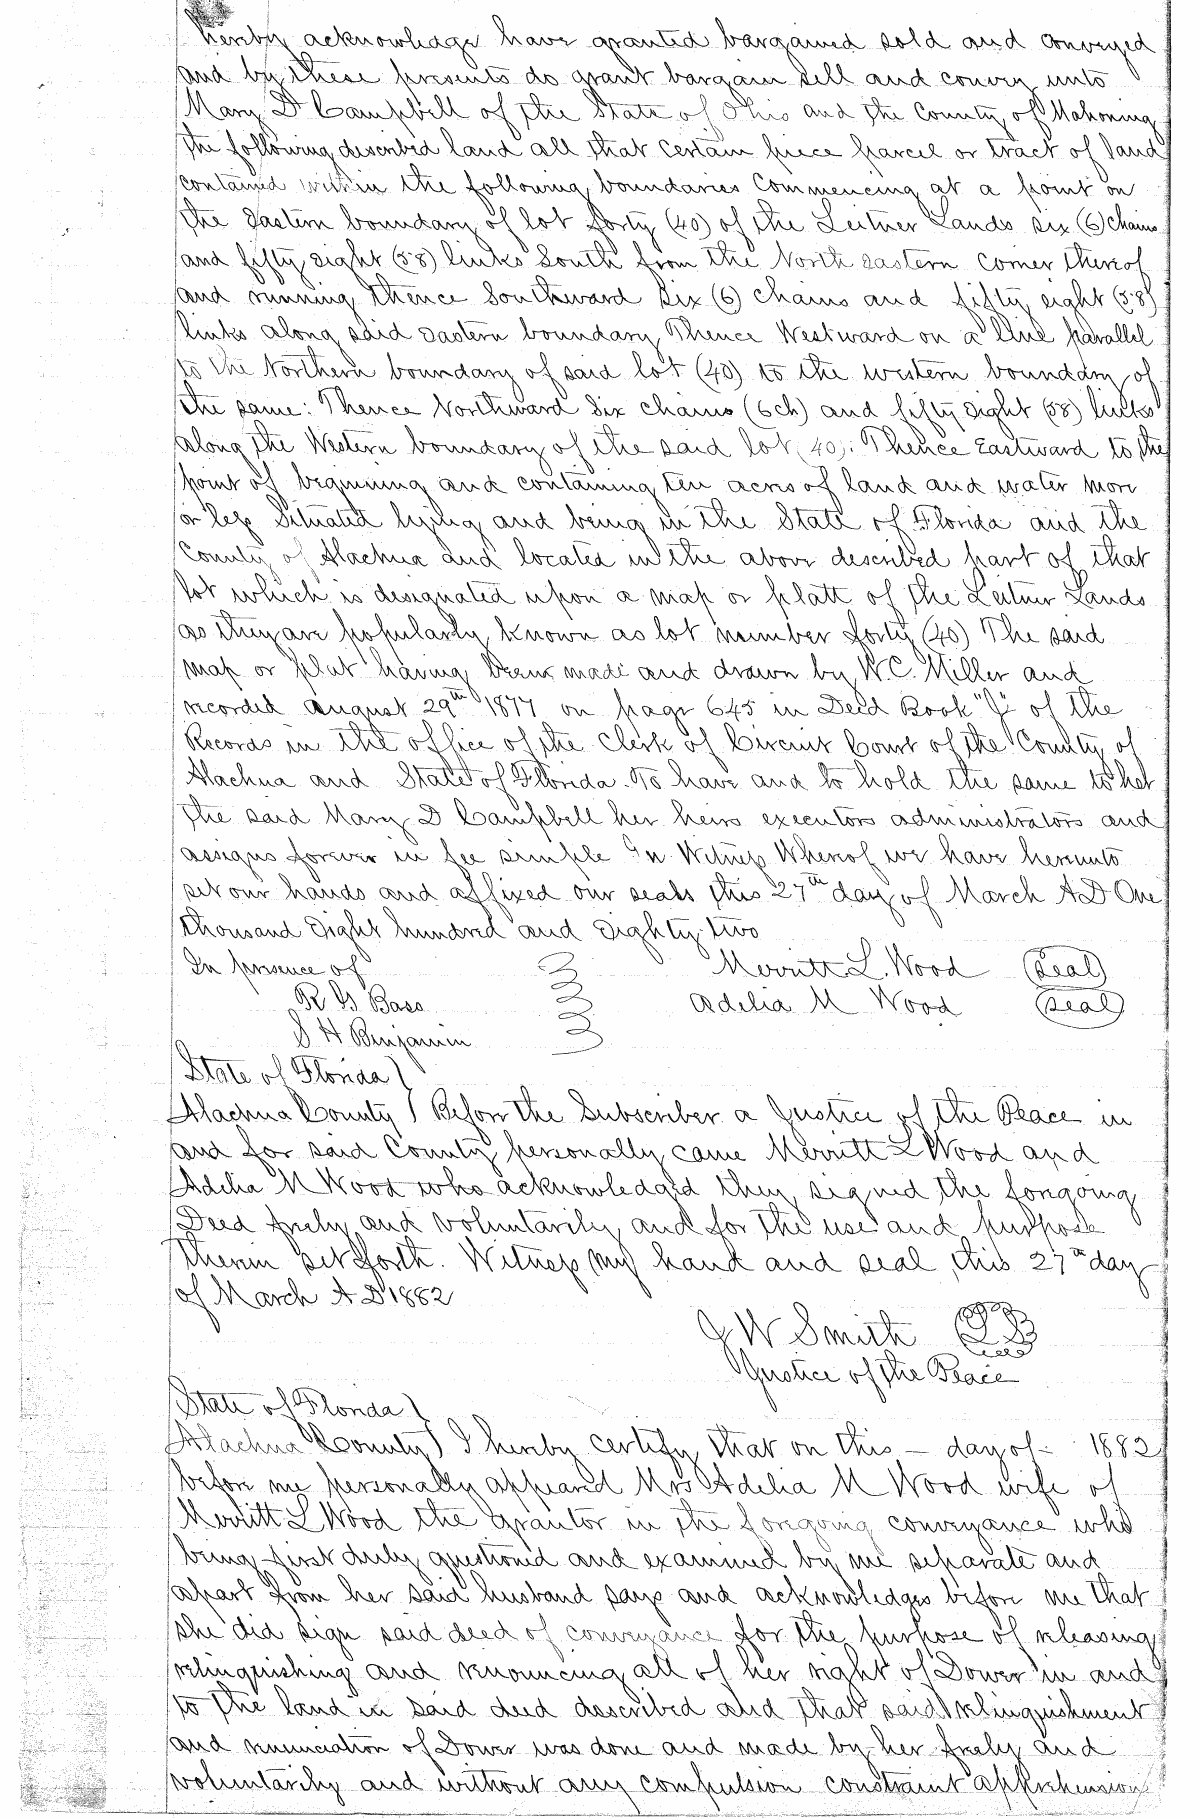 hereby acknowledge have granted bargained sold and conveyed
and by these presents do grant bargain sell and convey unto
Mary D Campbell of the State of Ohio and the County of Mahoning
the following described land all that certain piece parcel or tract of land
contained within the following boundaries Commencing at a point on
the Eastern boundary of lot forty (40) of the Leitner Lands six (6) chains
and fifty eight (58) links South from the North eastern corner thereof
and running thence Southward six (6) chains and fifty eight (58)
links along said eastern boundary Thence Westward on a line parallel
to the Northern boundary of said lot (40) to the western boundary of
the same: Thence Northward Six chains (6ch) and fifty eight (58) links
along the Western boundary of the said lot (40): Thence Eastward to the
point of beginning and containing ten acres of land and water more
or less Situated lying and being in the State of Florida and the
County of Alachua and located in the above described part of that
lot which is designated upon a map or platt of the Leitner Lands
as they are popularly known as lot number forty (40) The said
map or plat having been made and drawn by W.C. Miller and
recorded August 29th 1877 on page 645 in Deed Book "J" of the
Records in the office of the Clerk of Circuit Court of the County of
Alachua and State of Florida. To have and to hold the same to her
the said Mary D Campbell her heirs executors administrators and
assigns forever in fee simple In Witness Whereof we have hereunto
set our hands and affixed our seals this 27th day of March A D One
thousand Eight hundred and Eighty two
In presence of Merritt L. Wood (Seal)
R G Bass Adelia M Wood (Seal)
S H Benjamin
State of Florida
Alachua County Before the Subscriber a Justice of the Peace in
and for said County personally came Merritt L Wood and
Adelia M Wood who acknowledged they signed the foregoing
Deed freely and voluntarily and for the use and purpose
therein set forth. Witness my hand and seal, this 27th day
of March A D 1882
J W Smith
Justice of the Peace
State of Florida
Alachua County I hereby certify that on this — day of — 1882
before me personally appeared Mrs Adelia M Wood wife of
Merritt L Wood the grantor in the foregoing conveyance who
being first duly questioned and examined by me separate and
apart from her said husband says and acknowledges before me that
she did sign said deed of conveyance for the purpose of releasing
relinquishing and renouncing all of her right of Dower in and
to the land in said deed described and that said relinquishment
and renunciation of Dower was done and made by her freely and
voluntarily and without any compulsion constraint apprehension